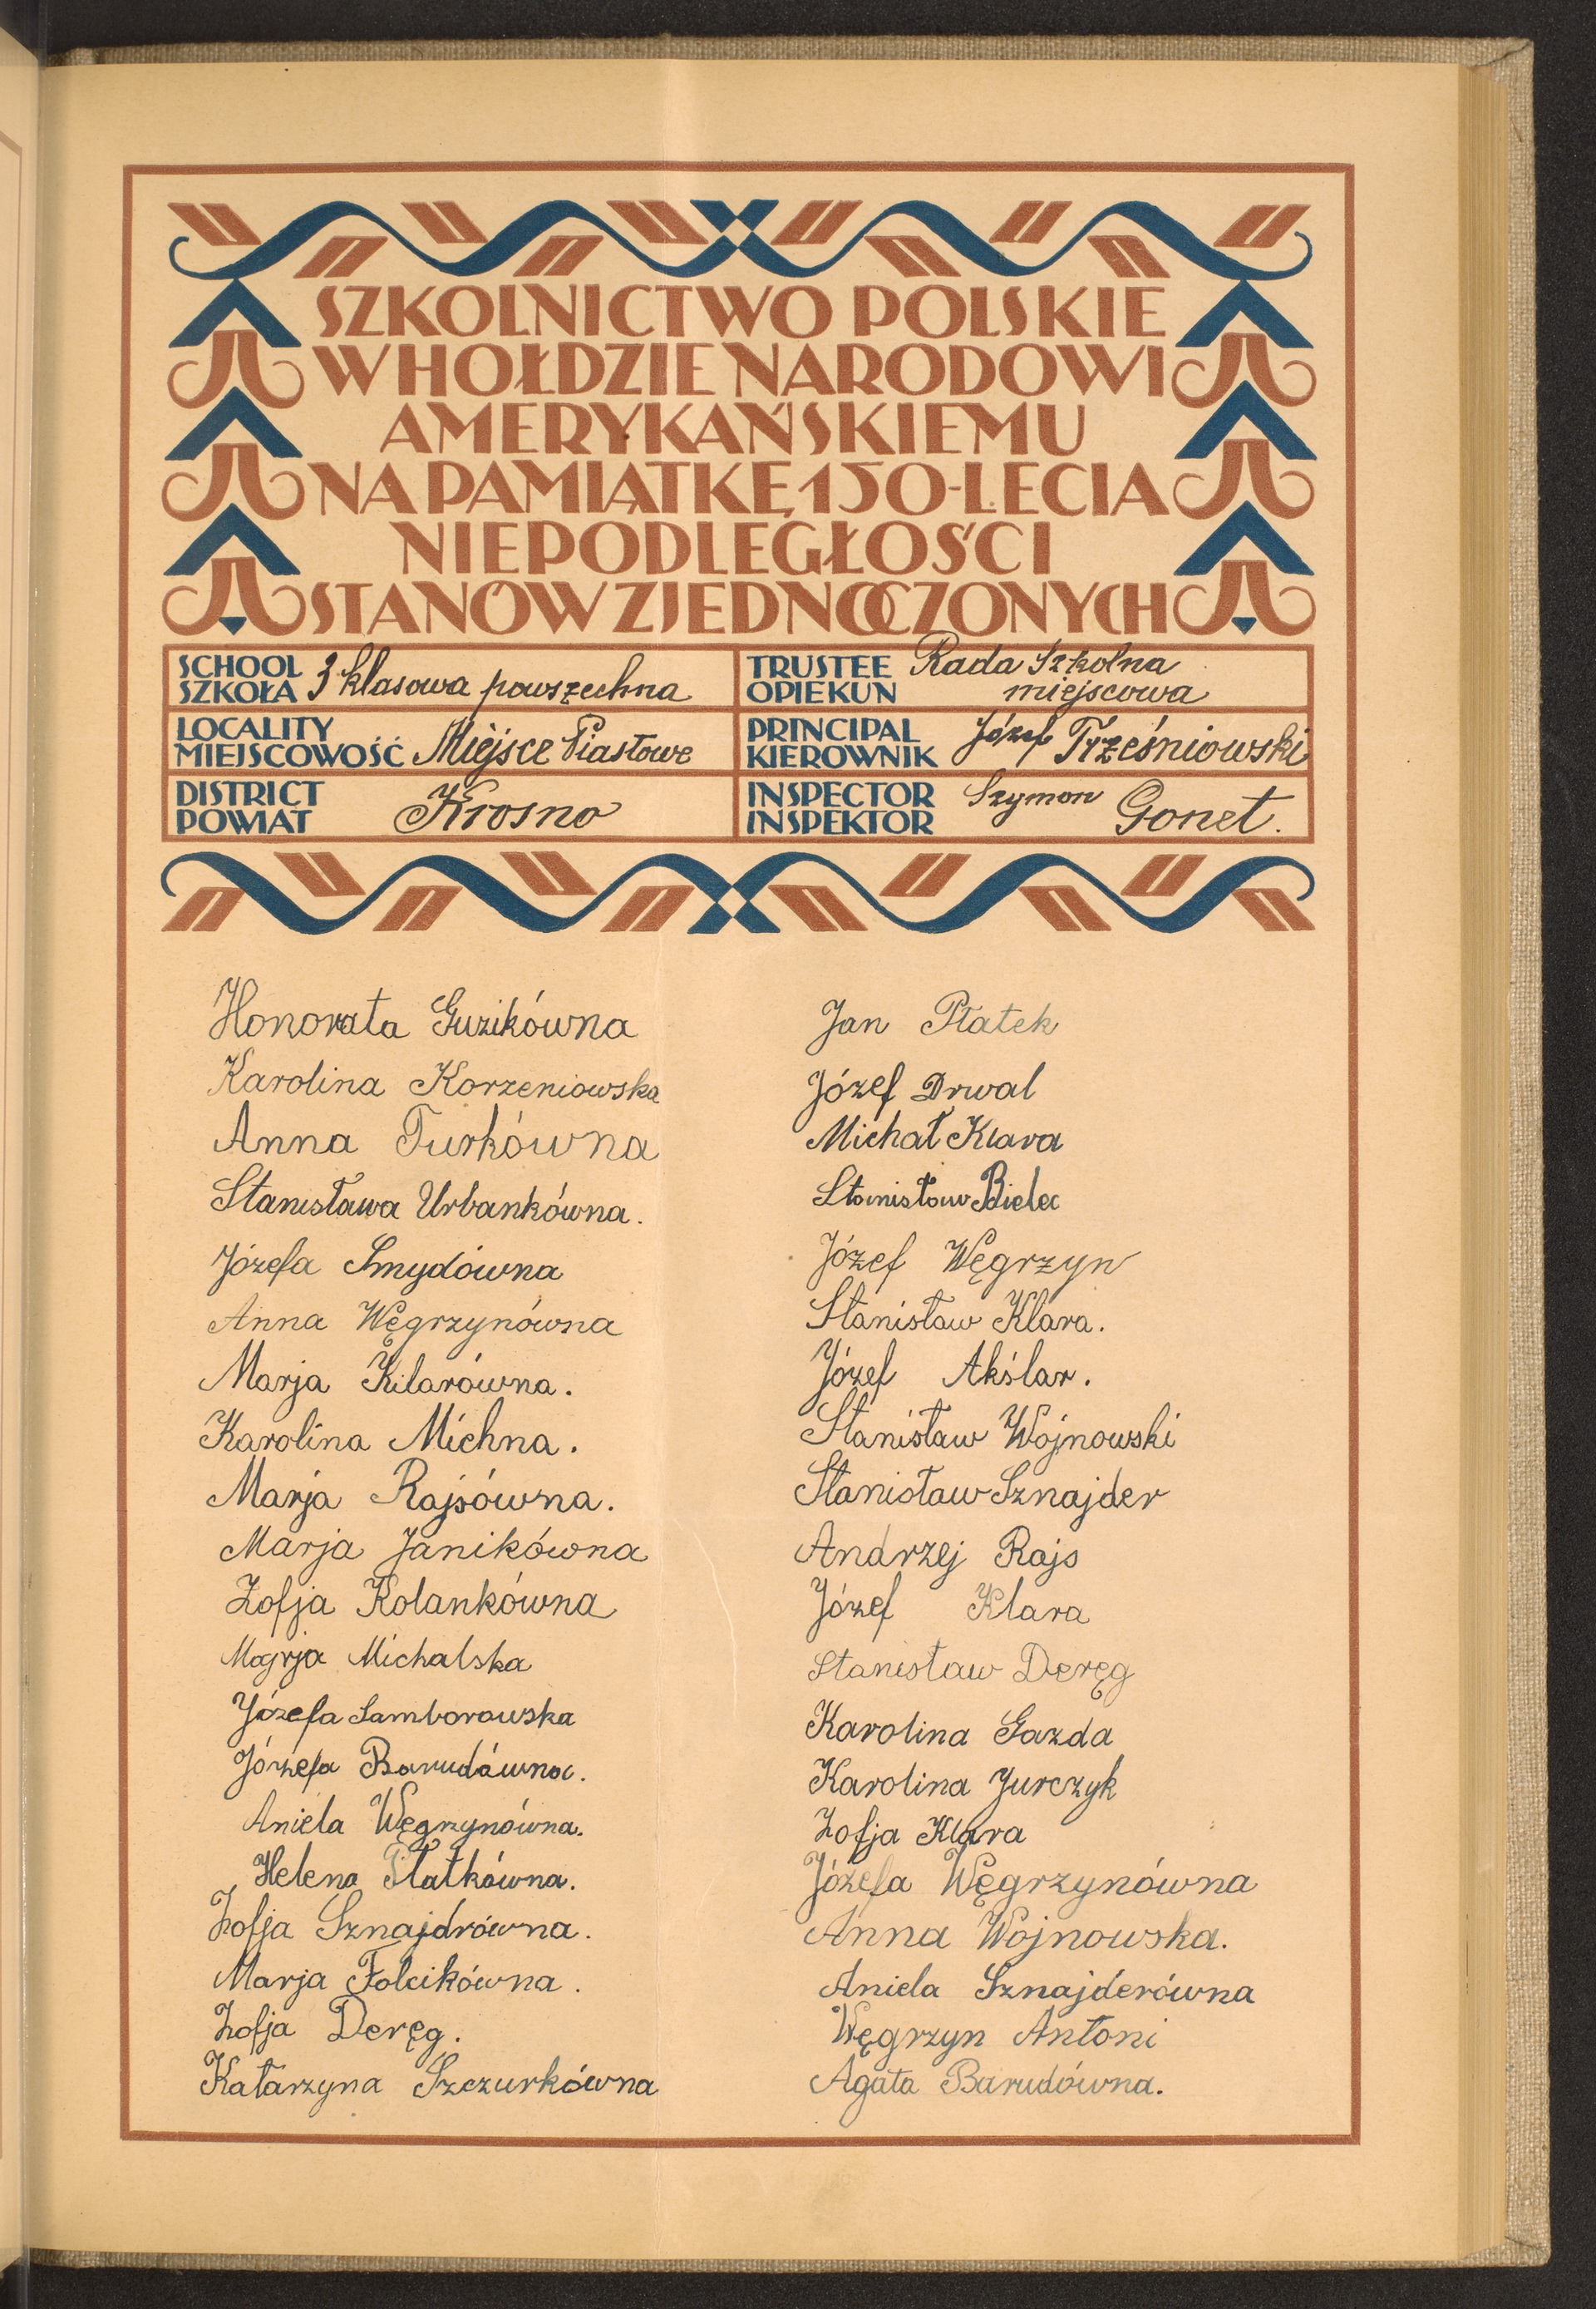 SZKOLNICTWO POLSKIE
W HOŁDZIE NARODOWI
AMERYKAŃSKIEMU
NA PAMIĄTKĘ 150-LECIA
NIEPODLEGŁOŚCI
STANÓW ZJEDNOCZONYCH
SCHOOL
SZKOŁA 3 klasowa powszechna
TRUSTEE Rada Szkolna
OPIEKUN miejscowa
LOCALITY
MIEJSCOWOŚĆ Miejsce Piastowe
PRINCIPAL
KIEROWNIK Józef Trześniowski
DISTRICT
POWIAT Krosno
INSPECTOR
INSPEKTOR Szymon Gonet.
Honorata Guzikówna
Karolina Korzeniowska
Anna Turkówna
Stanisława Urbankówna.
Józefa Smydówna
Anna Węgrzynówna
Marja Kilarówna.
Karolina Michna.
Marja Rajsówna.
Marja Janikówna
Zofja Kolankówna
Marja Michalska
Józefa Samborowska
Józefa Barudówna.
Aniela Węgrzynówna.
Helena Płatkówna.
Zofja Sznajdrówna.
Marja Folcikówna.
Zofja Deręg.
Katarzyna Szczurkówna
Jan Płatek
Józef Drwal
Michał Klara
Stanisław Bielec
Józef Węgrzyn
Stanisław Klara.
Józef Akślar.
Stanisław Wojnowski
Stanisław Sznajder
Andrzej Rajs
Józef Klara
Stanisław Deręg
Karolina Gazda
Karolina Jurczyk
Zofja Klara
Józefa Węgrzynówna
Anna Wojnowska.
Aniela Sznajderówna
Węgrzyn Antoni
Agata Barudówna.